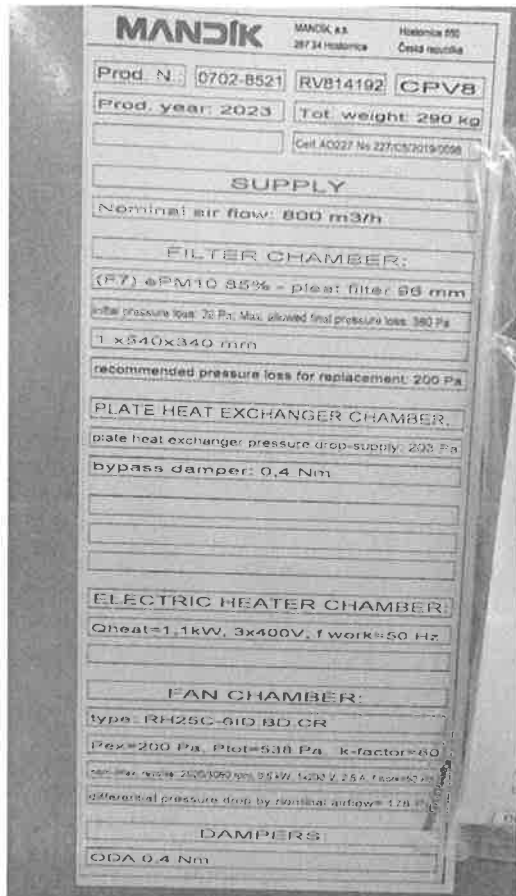 MANDÍK
MANDÍK, a.s. Hostomice 550
267 24 Hostomice Česká republika
Prod. N.: 0702-8521 RV814192 CPV8
Prod. year: 2023 Tot. weight: 290 kg
Cert. AO227 No.
SUPPLY
Nominal air flow: 800 m3/h
FILTER CHAMBER:
(F7) ePM10 85% - pleat filter 96 mm
initial pressure loss: Pa; Max. allowed final pressure loss: Pa
1 x540x340 mm
recommended pressure loss for replacement: 200 Pa
PLATE HEAT EXCHANGER CHAMBER:
plate heat exchanger pressure drop-supply: 203 Pa
bypass damper: 0,4 Nm
ELECTRIC HEATER CHAMBER:
Qheat=1,1kW, 3x400V, f work=50 Hz
FAN CHAMBER:
type: RH25C-6ID.BD.CR
Pex=200 Pa, Ptot=538 Pa, k-factor=60
differential pressure drop by nominal airflow= 178 Pa
DAMPERS:
ODA 0,4 Nm